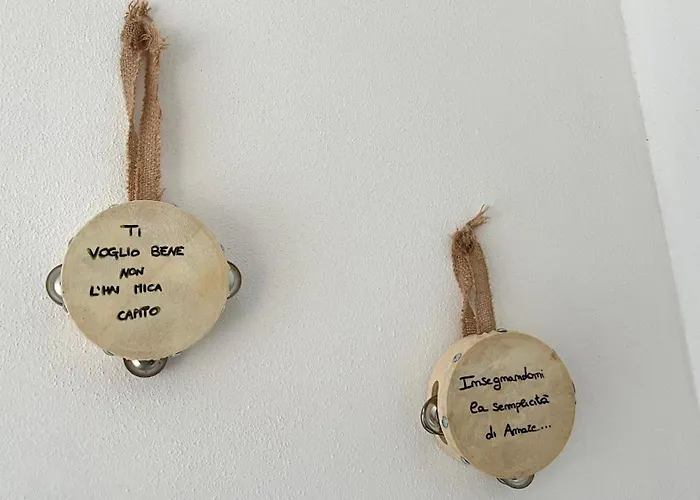 TI
VOGLIO BENE
NON
L'HAI MICA
CAPITO
Insegnandomi
la semplicità
di Amare...